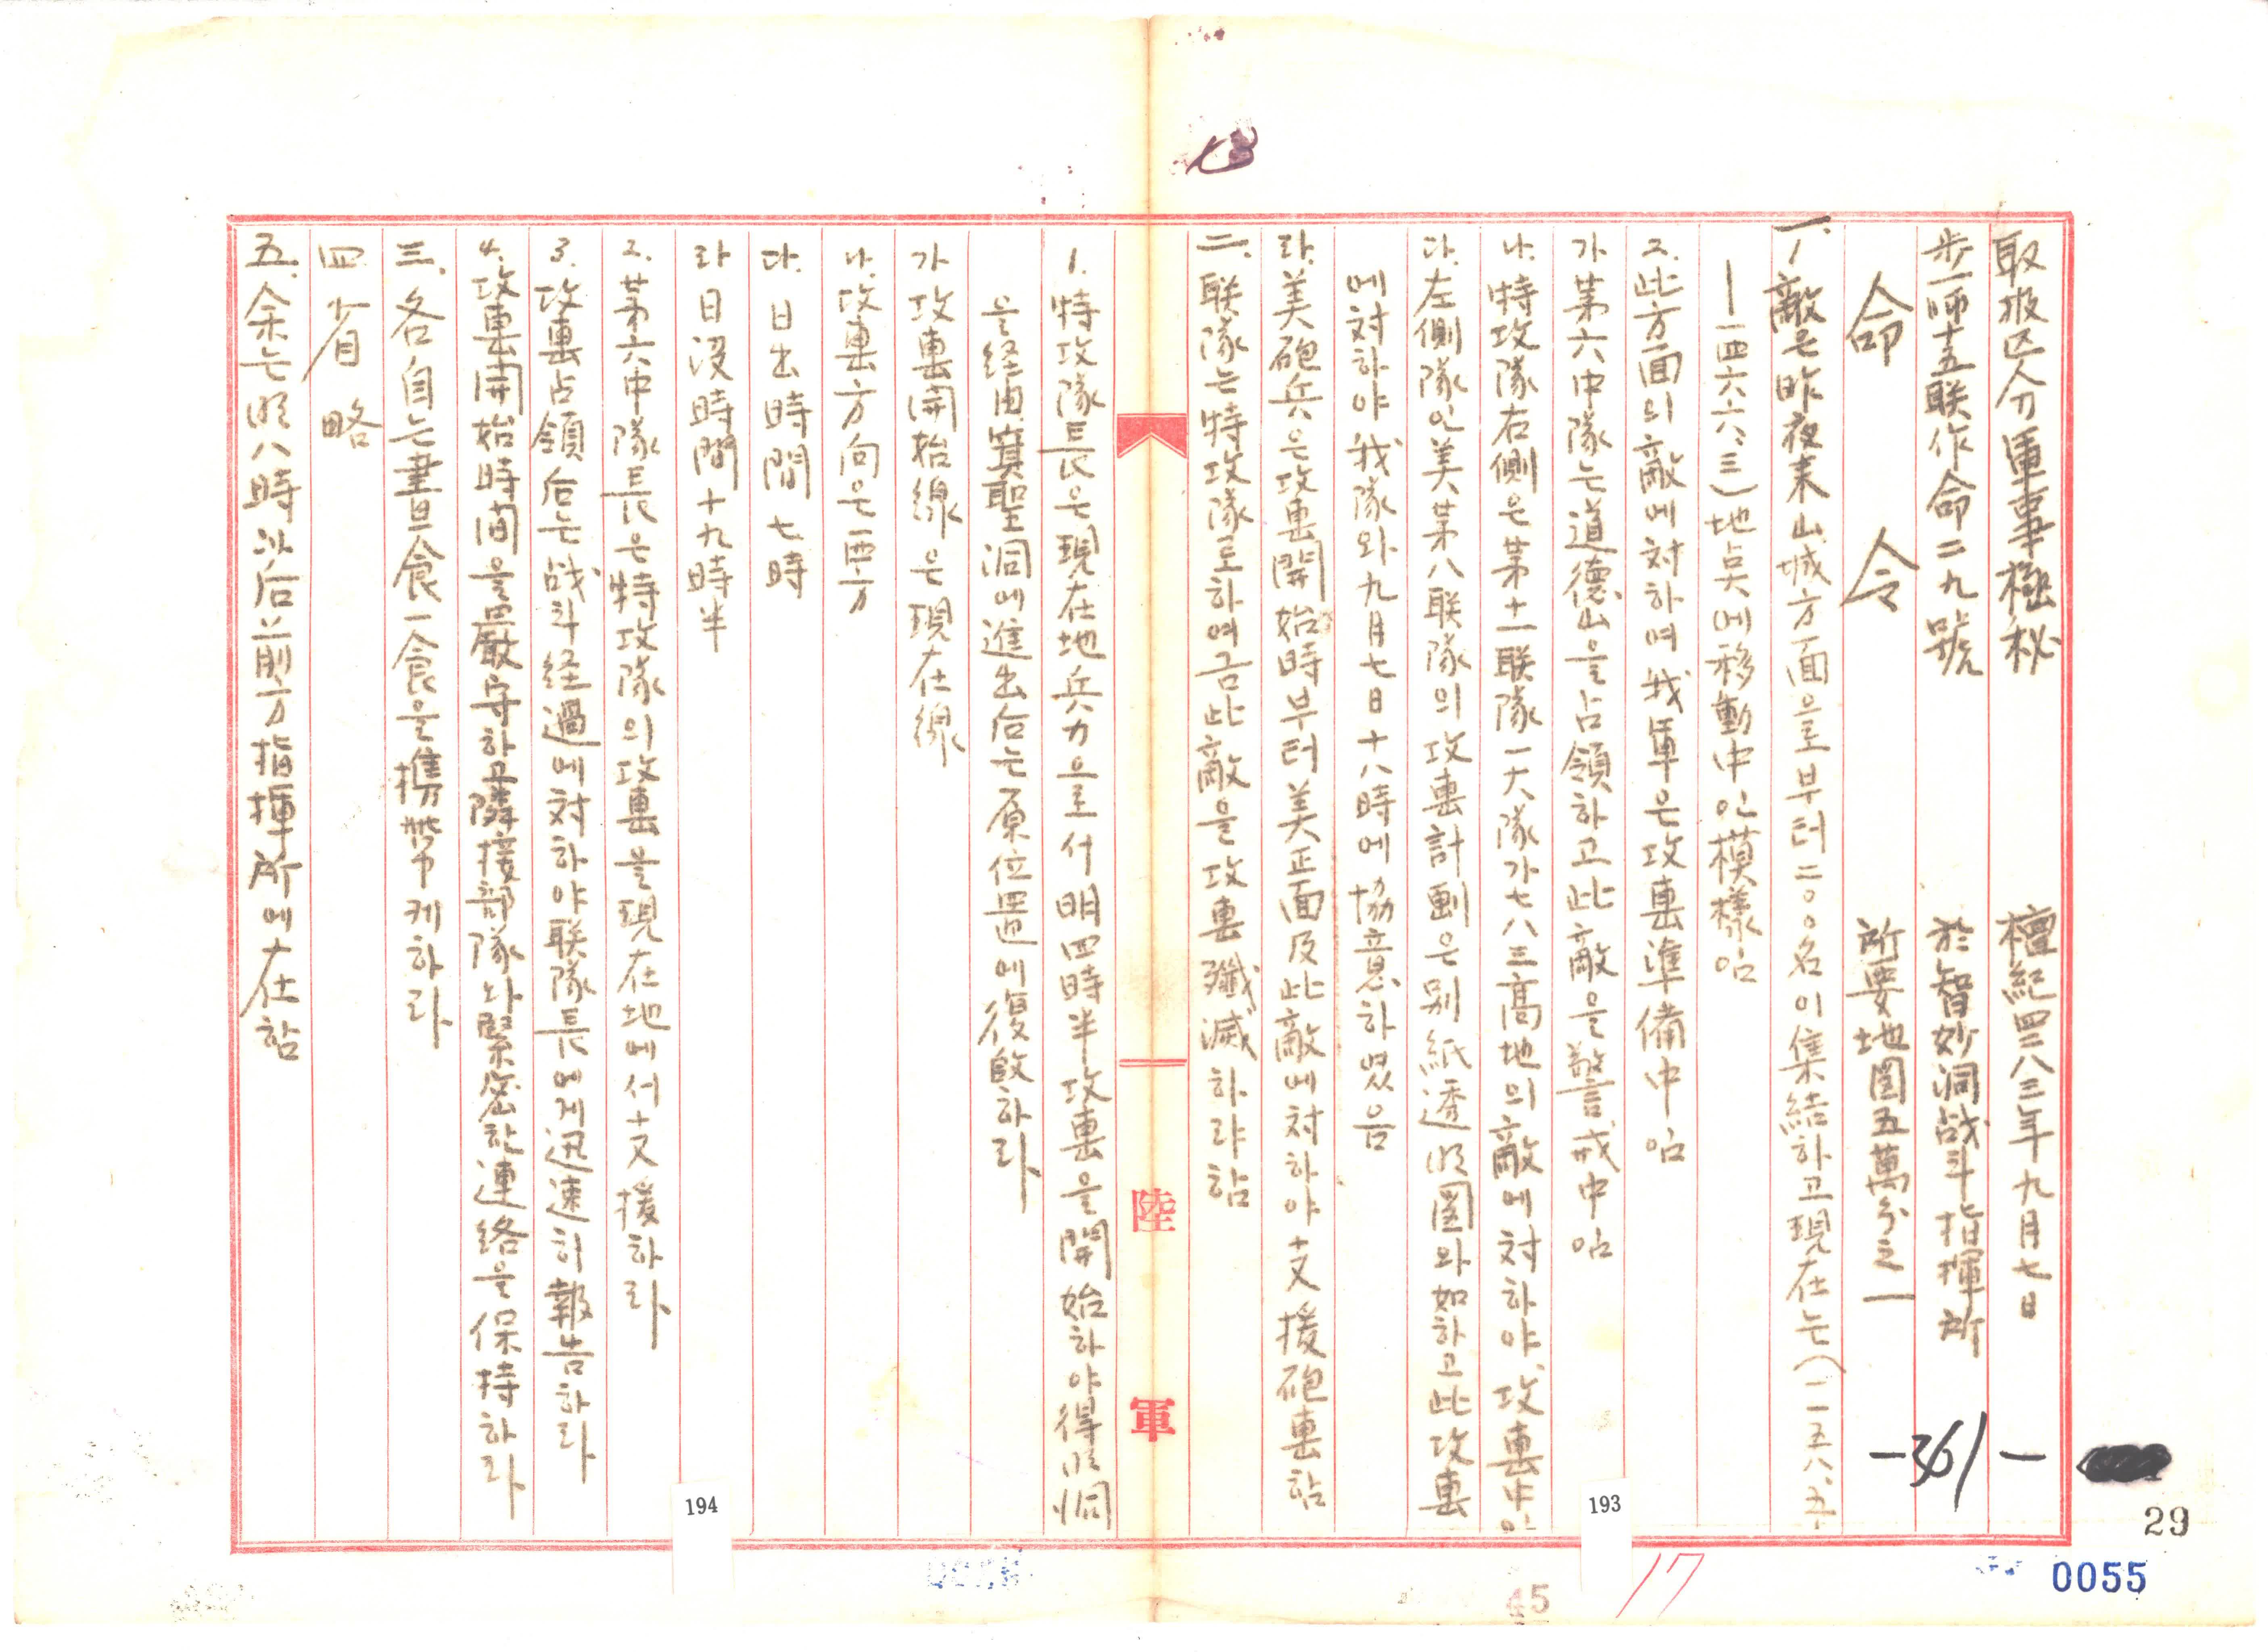 取扱区分 軍事極秘 檀紀四二八三年九月七日
步一師十五联作命二九號 於智妙洞战斗指揮所
命令 所要地図五萬分之一
一、1 敵은昨夜来山城方面으로부터二〇〇名이集結하고現在는(一一五八、五
―一四六六、三)地点에移動中인模樣임
2. 此方面의敵에対하여我軍은攻擊準備中임
가 第六中隊는道德山을占領하고此敵을警戒中임
나. 特攻隊右側은第十一联隊一大隊가七八三高地의敵에対하야、攻擊中인
다. 左側隊인美第八联隊의攻擊計劃은別紙透明図와如하고此攻擊
에対하야我隊와九月七日十八時에協意하였음
라. 美砲兵은攻擊開始時부터美正面及此敵에対하야支援砲擊함
二. 联隊는特攻隊로하여금此敵을攻擊殲滅하랴함
1. 特攻隊長은現在地兵力으로서明四時半攻擊을開始하야得明洞
을経由 聖洞에進出后는原位置에復皈하라
가 攻擊開始線은現在線
나. 攻擊方向은西方
다. 日出時間七時
라 日没時間十九時半
2. 第六中隊長은特攻隊의攻擊을現在地에서支援하라
3. 攻擊占領后는战斗経過에対하야联隊長에게迅速히報告하라
4. 攻擊開始時間을嚴守하고隣接部隊와緊密한連絡을保持하라
三. 各自는晝食一食을携帶케하라
四. 省略
五. 余는明八時以后前方指揮所에在함
陸軍
-361-
194
193
29
0055
45
17